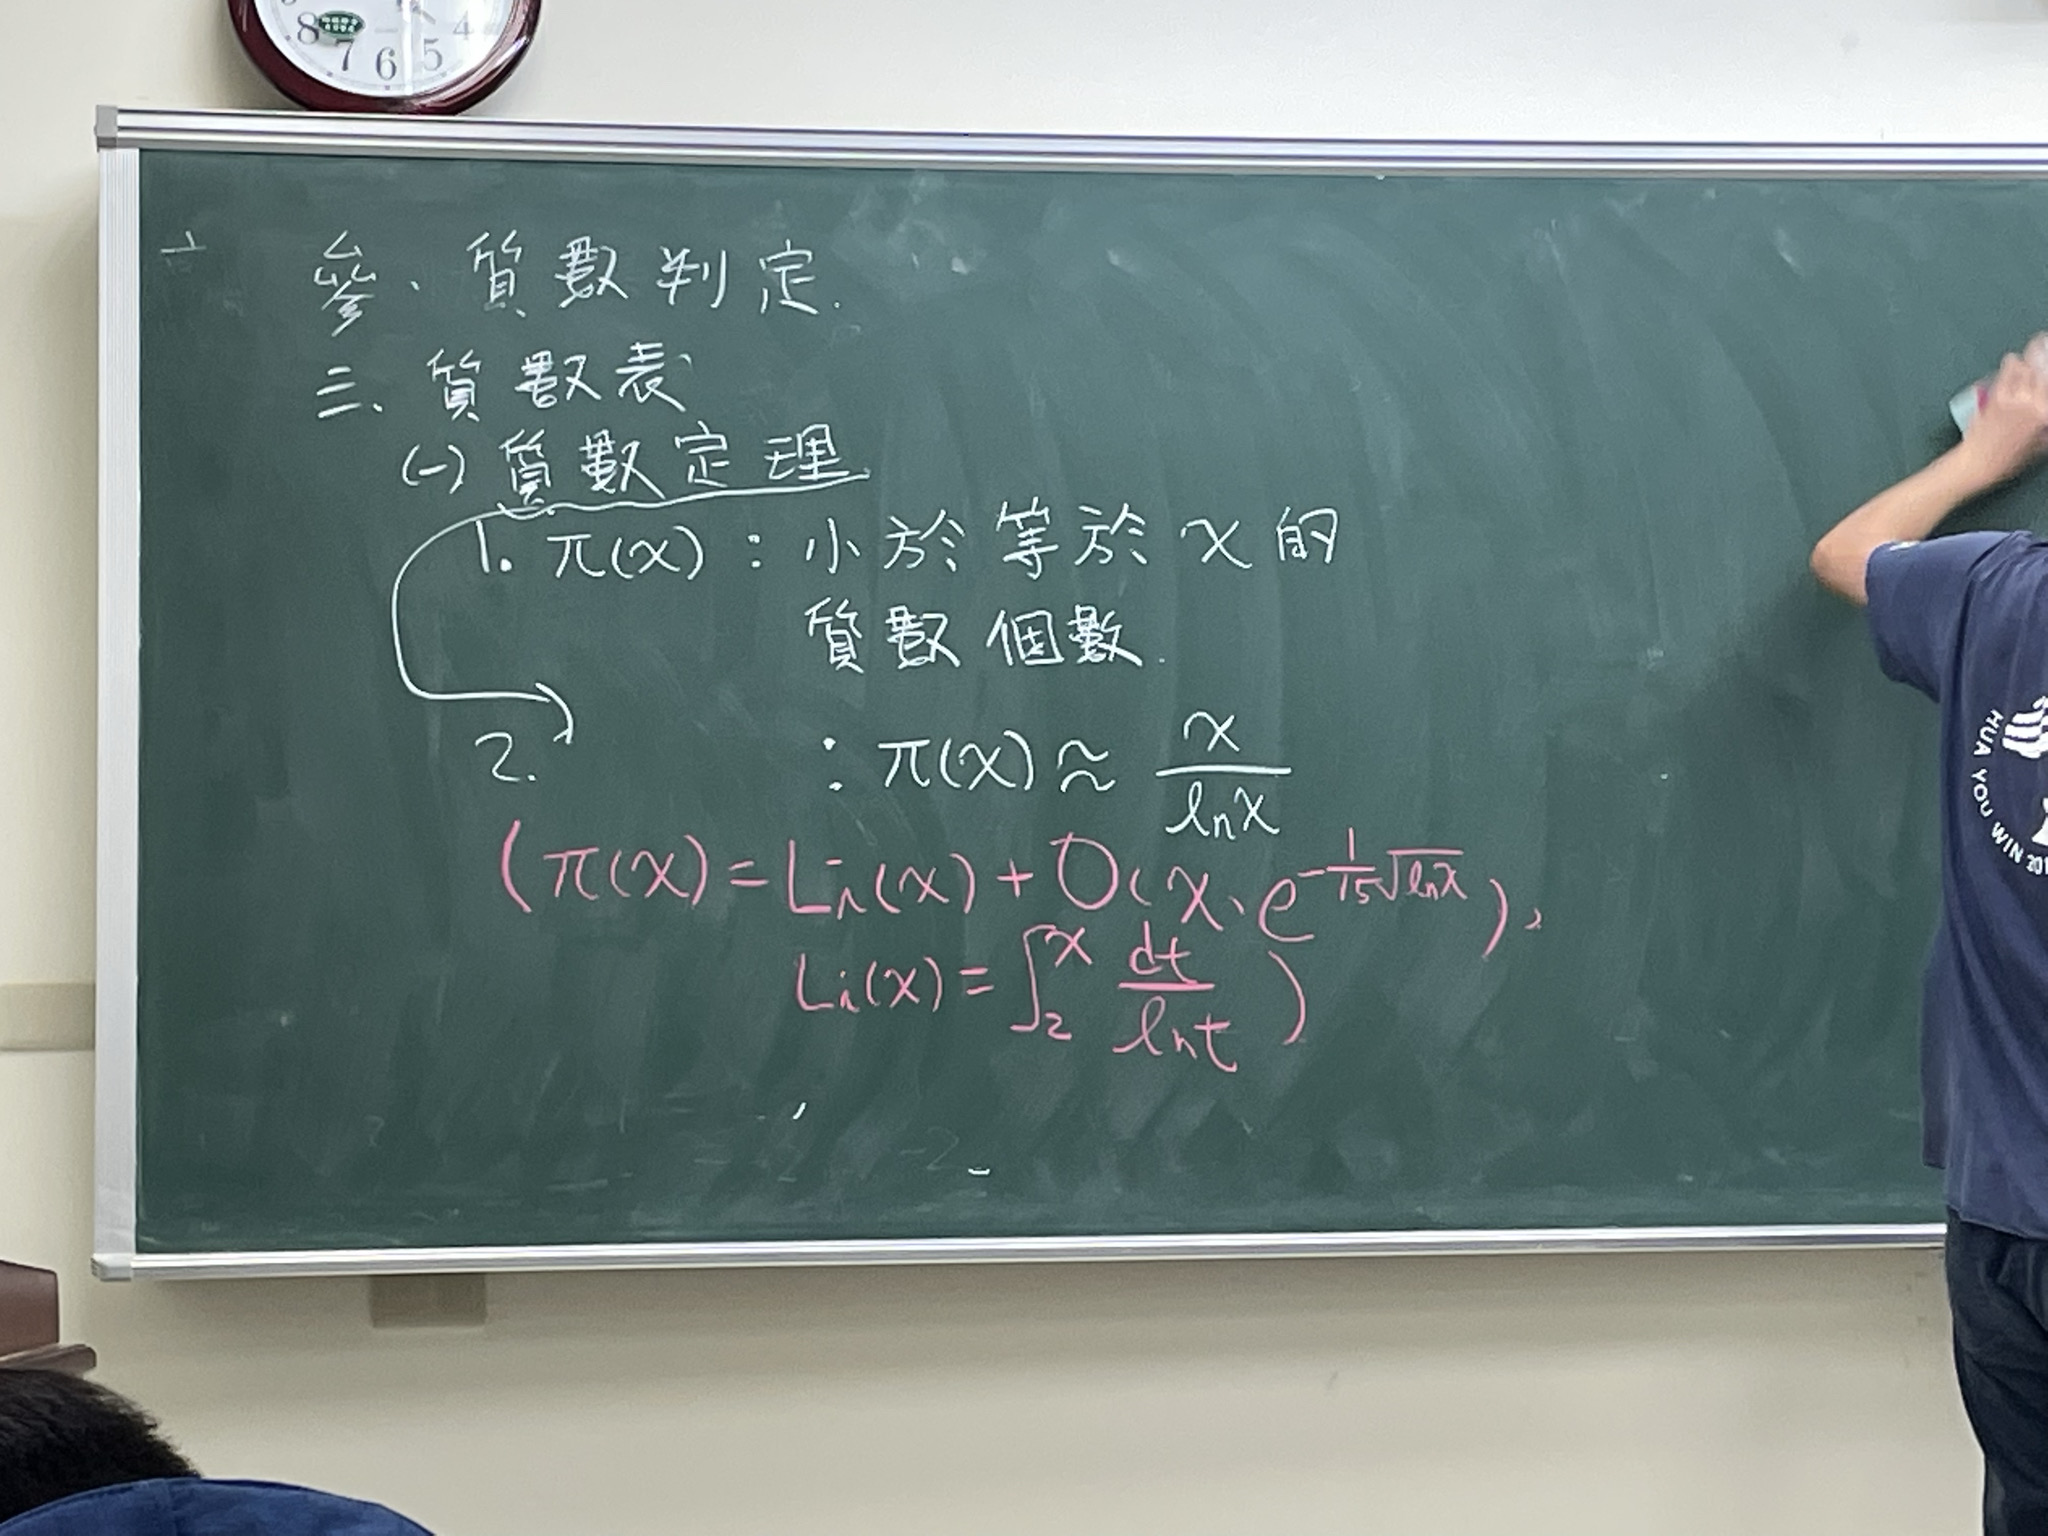 參、質數判定.
三、質數表
(一) 質數定理
1. π(x)：小於等於 x 的
質數個數.
2. ：π(x) ≈ x/ln x
(π(x) = Li(x) + O(x·e^{-1/15 √(ln x)}),
Li(x) = ∫_2^x dt/ln t)
8 7 6 5 4
HUA YOU WIN 201